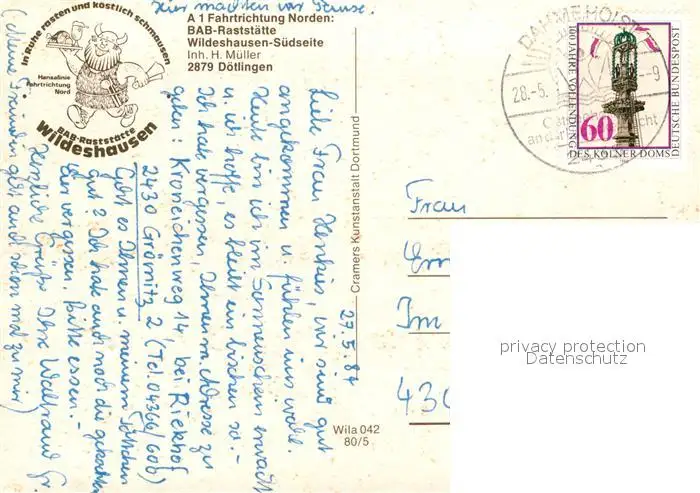 hier machten wir Pause.
In Ruhe rasten und köstlich schmausen
Hansalinie
Fahrtrichtung
Nord
BAB-Raststätte
Wildeshausen
A 1 Fahrtrichtung Norden:
BAB-Raststätte
Wildeshausen-Südseite
Inh. H. Müller
2879 Dötlingen
27.5.84
Liebe Frau Henkies, wir sind gut
angekommen u. fühlen uns wohl.
Heute bin ich im Sonnenschein erwacht
u. ich hoffe, es bleibt ein bischen so.-
Ich habe vergessen, Ihnen m. Adresse zu
geben: Kroneichenweg 14, bei Riekhof
2430 Grömitz 2 (Tel. 04366/606)
Geht es Ihnen u. meinem
gut? Ich hab auch noch die gekochten
Eier vergessen. Bitte essen.-
Herzliche Grüße Ihre Waltraud
(Meine Freundin gibt auch schon mal zu mir)
Cramers Kunstanstalt Dortmund
Wila 042
80/5
DAHME, HOLST
28.-5.
-9
100 JAHRE VOLLENDUNG
DES KÖLNER DOMS
DEUTSCHE BUNDESPOST
60
Frau
Im
430
privacy protection
Datenschutz